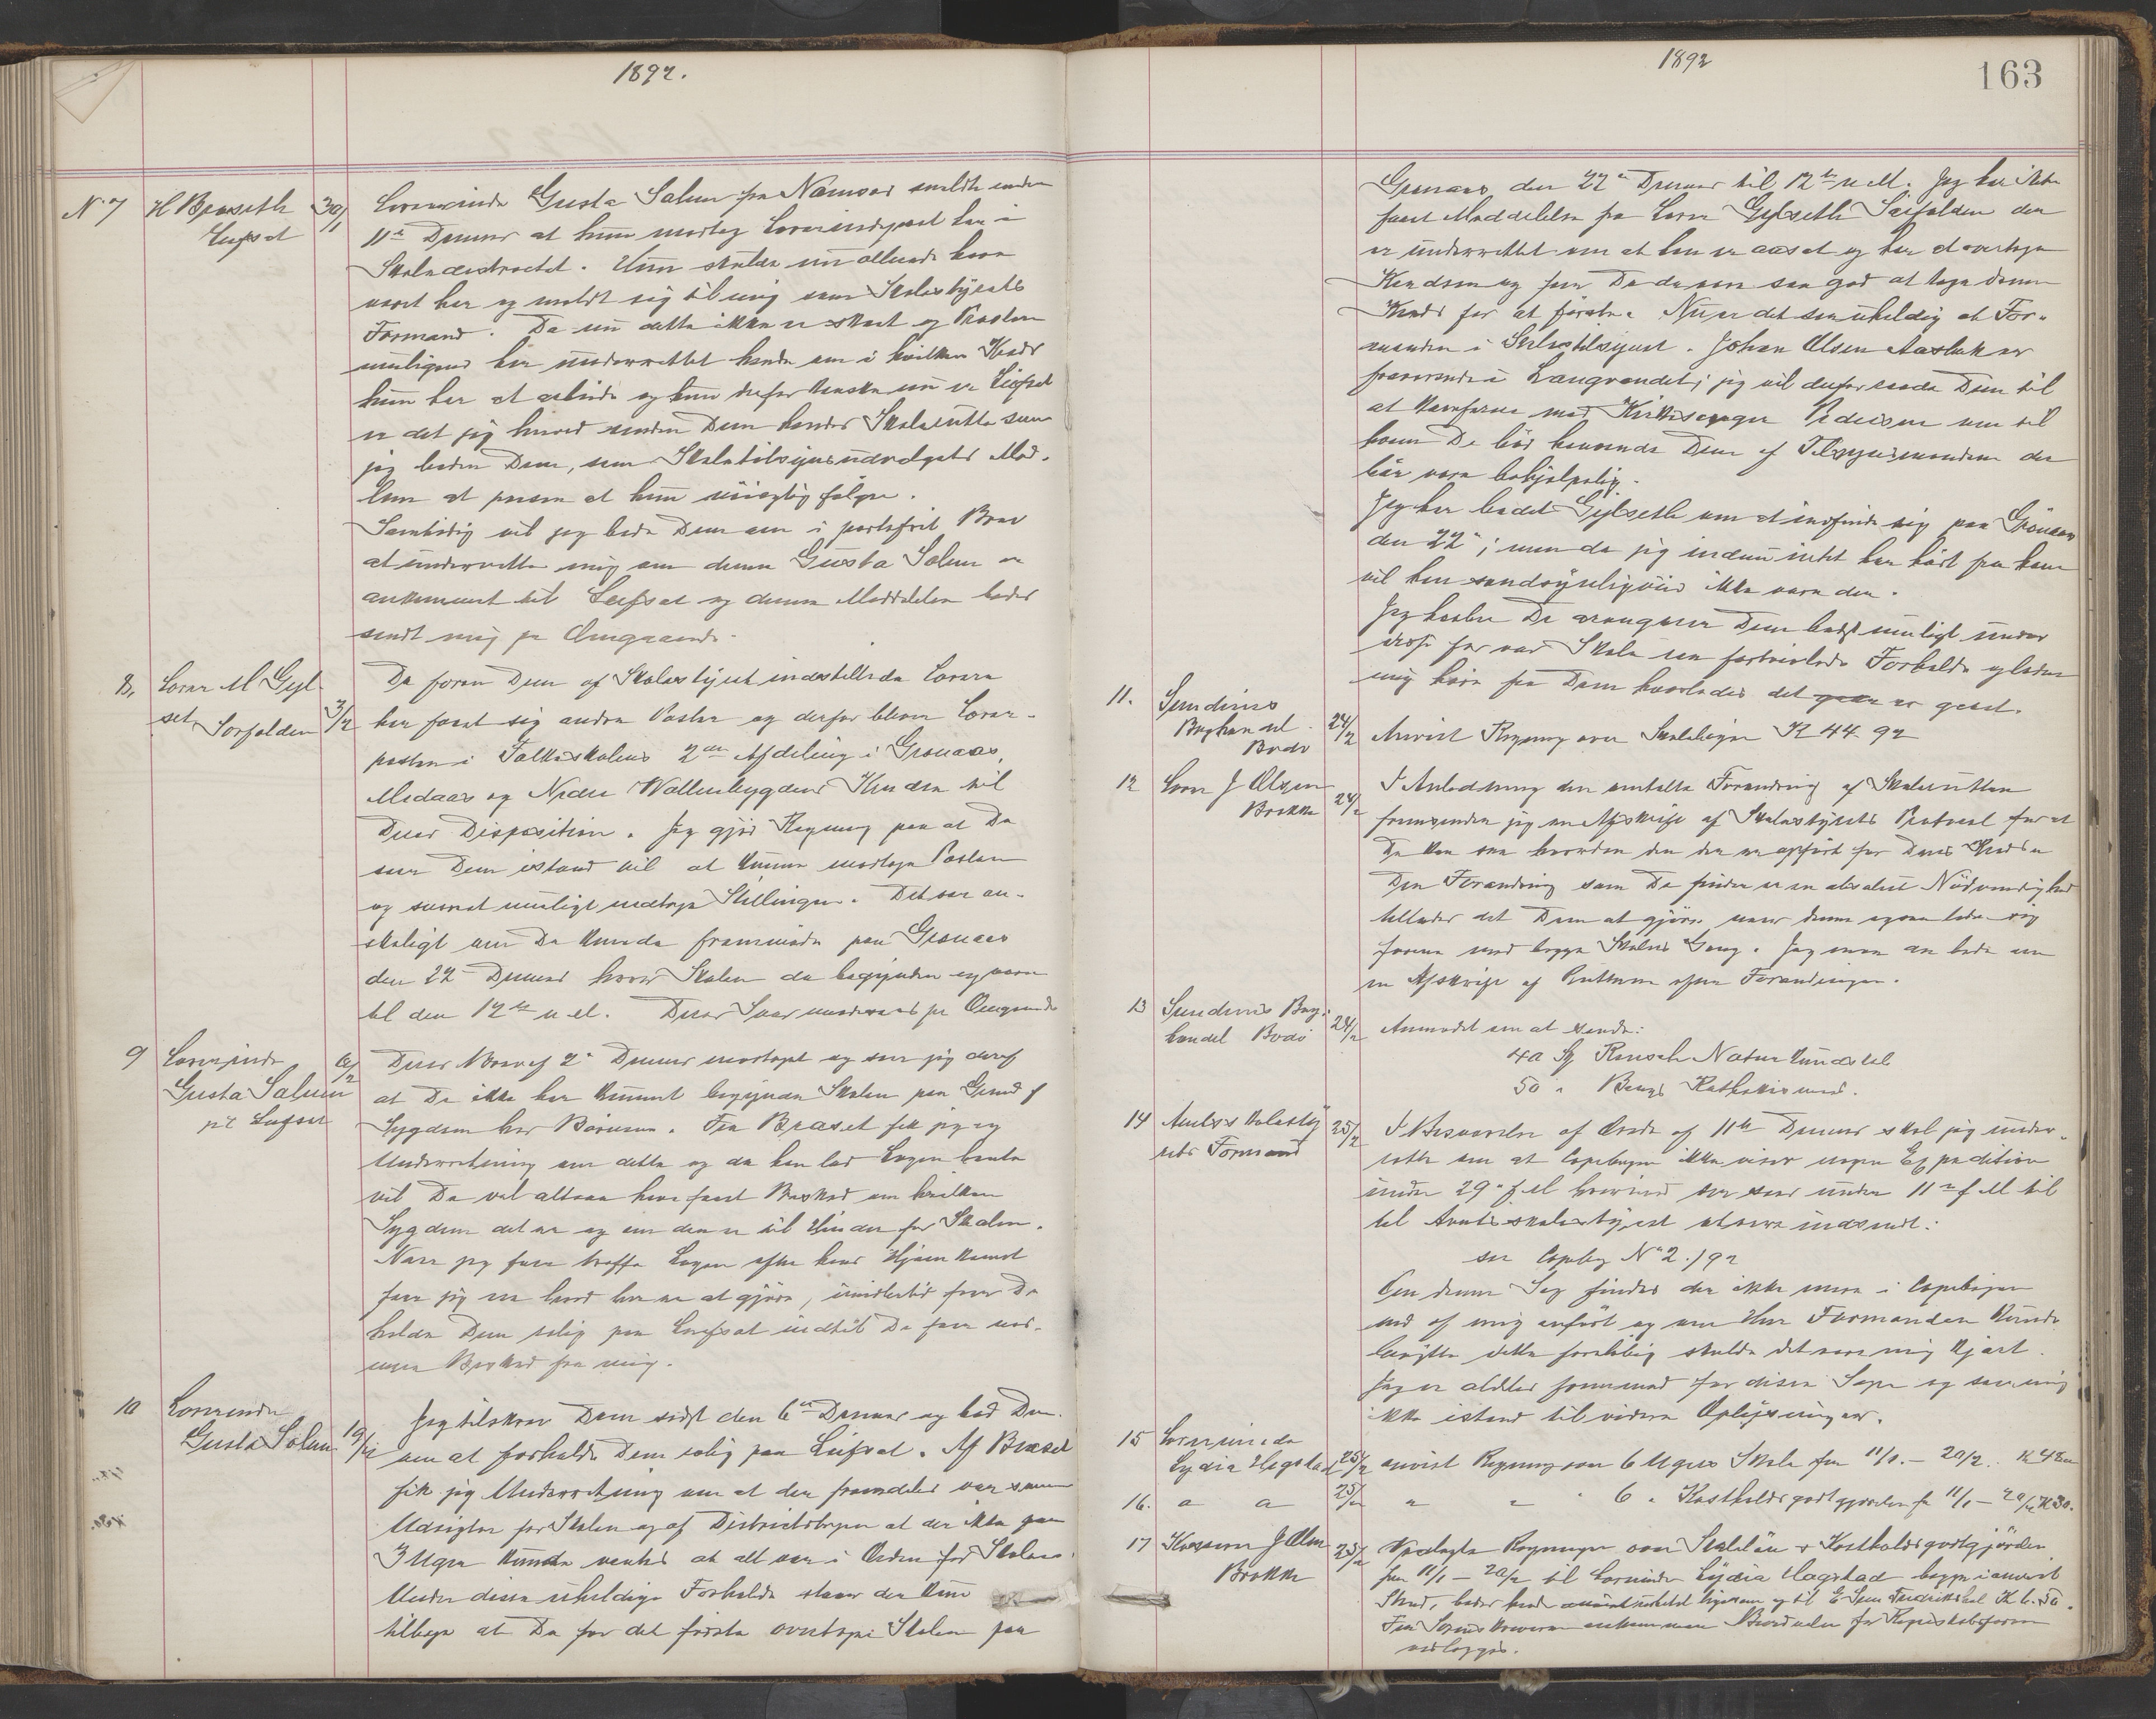 1892.
N. 7 H Braseth Lufsat 30/1
Lærerinde Gusta Solum fra Namsos meldte under
11te Dennes at hun modtog Lærerindepost her i
Skoledistrictet. Hun skulde nu allerede have
været her og meldt sig til mig som Skolestyrets
Formand. Da nu dette ikke er skeet og Presten
muligens har underrettet hende om i hvilken Kreds
hun har at arbeide og hun derfor kanske nu er Lufsat
er det jeg herved sender Dem hendes Skolerutte som
jeg beder Dem, som Skoletilsynsudvalgets Med-
lem at passe at hun nøiagtig følger.
Samtidig vil jeg bede Dem om i portofrit Brev
at underrette mig om denne Gusta Solum er
ankommet til Lufsat og denne Meddelelse bedes
sendt mig pr Omgaaende.
8, Lærer M Gyl-
set, Sørfolden 3/2
De foran Dem af Skolestyret indstillede Lærere
har faaet sig andre Poster og derfor bliver Lærer-
posten i Folkeskolens 2den Afdeling i Grønaas,
Medaas og Nedre Valleubygdens Kredse til
Deres Disposition. Jeg gjør Regning paa at De
ser Dem istand til at kunne modtage Posten
og snarest muligt modtage Stillingen. Det var øn-
skeligt om De kunde fremmøde paa Grønaas
den 22 Dennes hvor Skolen da begynder og varer
til den 12te n M. Deres Svar modsees pr Omgaaende
9 Lærerinde
Gusta Solum
pt Lufsat 6/2
Deres Brev af 2. Dennes modtaget og ser jeg deraf
at De ikke har kunnet begynde Skolen paa Grund af
Sygdom hos Børnene. Fra Braset fik jeg og
Underretning om dette og da han lod Lægen hente
vil De vel altsaa have faaet Besked om hvilken
Sygdom det er og om den er til Hinder for Skolen.
Naar jeg faar træffe Lægen efter hans Hjemkomst
faar jeg se hvad her er at gjøre, imidlertid faar De
holde Dem rolig paa Lufsat indtil De faar nær-
mere Besked fra mig.
10 Lærerinde
Gusta Solum 19/2
Jeg tilskrev Dem sidst den 6te Dennes og bad Dem
om at forholde Dem rolig paa Lufsat. Af Braset
fik jeg Underretning om at der fremdeles var samme
Udsigter for Skolen og af Districtslægen at der ikke paa
3 Uger kunde ventes at alt var i Orden for Skolen.
Under disse uheldige Forholde staar der kun
tilbage at De for det første overtager Skolen paa
1892
163
Grønaas den 22de Dennes til 12te n M. Jeg har ikke
faaet Meddelelse fra Lærer Gylseth Sørfolden der
er underrettet om at han er ansat og har at overtage
Kredsen og faar De da være saa god at tage denne
Kreds for at første. Nu er det saa uheldig at For-
manden i Skoletilsynet. Johan Olsen Aasbak er
fraværende i Langvandet; jeg vil derfor raade Dem til
at konferere med Kirkesanger Pedersen om til
hvem De bør henvende Dem af Tilsynsmændene der
bør være behjælpelig.
Jeg har bedet Gylseth om at indfinde sig paa Grønaas
den 22de; men da jeg endnu intet har hørt fra ham
vil han sandsynligviis ikke være der.
Jeg haaber De arrangerer Dem bedst muligt under
disse for vor Skole saa fortvivlede Forholde og lader
mig høre fra Dem hvorledes det er gaaet.
11. Sundines
Boghandel
Bodø 24/2
Anvist Regning over Skolebøger K 44.92
12 Lærer J Olsen
Brække 24/2
I Anledning den omtalte Forandring af Skoleruttene
fremsender jeg en Afskrift af Skolestyrets Protocol for at
De kan see hvordan den der er opført for Deres Kredse
Den Forandring som De finder er en absolut Nødvendighed
tillades det Dem at gjøre, naar denne ogsaa lader sig
forene med begge Skolers Gang. Jeg maa da bede om
en Afskrift af Ruttene efter Forandringen.
13 Sundines Bog-
handel Bodø 24/2
Anmodet om at sende:
40 St Knudsens Naturkundskab
50 " Bangs Kathekismus.
14 Amtsskolesty-
rets Formand 25/2
I Besvarelse af Ærede af 11te Dennes skal jeg under-
rette om at Copibogen ikke viser nogen Expedition
under 29de f M hvorimod der sees under 11te f M til
til Amtsskolestyret at være indsendt:
see Copibog N. 2./92
Om denne Sag findes der ikke mere i Copibogen
end af mig anført og om Herr Formanden kunde
benytte dette foreløbig skulde det være mig kjært.
Jeg er aldeles fremmed for disse Sager og ser mig
ikke istand til videre Oplysninger.
15 Lærerinde
Lydia Hagstad 25/2
anvist Regning over 6 Ugers Skole fra 11/1. – 20/2.
16. " " 25/2
" " " 6 " Kostholdsgodtgjørelse fr 11/1 – 20/2 K 30.
17 Kasserer J Olsen
Brække 25/2
Vedlagte Regninger over Skoleløn & Kostholdsgodtgjørelse
fra 11/1 – 20/2 til Lærerinde Lydia Hagstad begge i anvist
Stand, bedes
vedlægges.